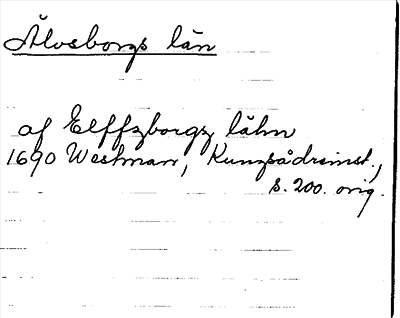 Älvsborgs län
af Elffzborgz lähn
1690 Westman, Kunzsådrimst.,
s. 200. orig.